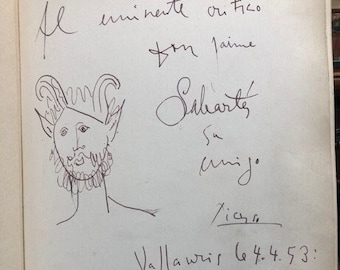 Al eminente critico
Don Jaime
Sabartés
su
amigo
Picasso
Vallauris le 4.4.53: